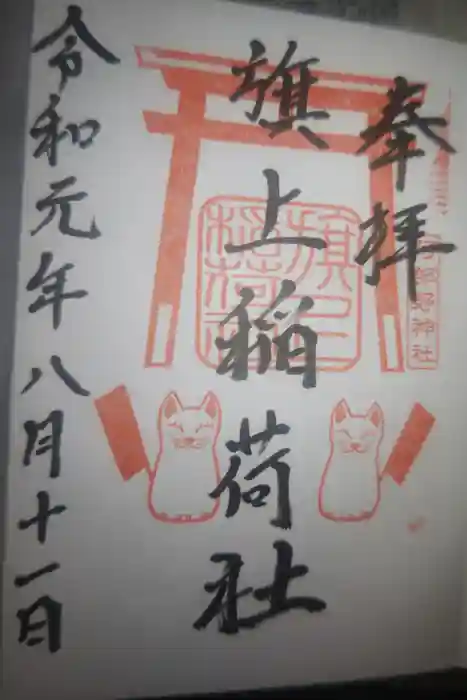 奉拝
旗上稲荷社
令和元年八月十一日
旗上稲荷社